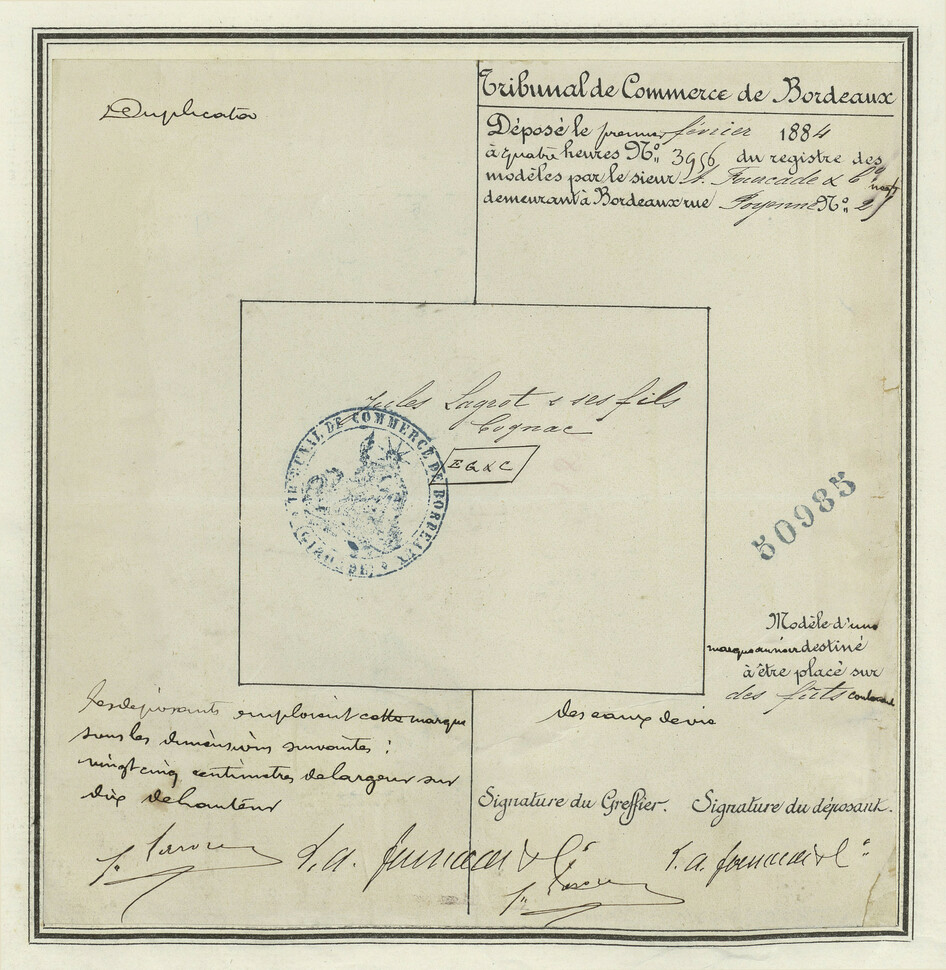 Duplicata
Tribunal de Commerce de Bordeaux
Déposé le premier février 1884
à quatre heures N.º 3956 du registre des
modèles par le sieur A. Fourcade & Cº
demeurant à Bordeaux rue Foyenne N.º 29
Jules Lagrot & ses fils
Cognac
E G & C
TRIBUNAL DE COMMERCE DE BORDEAUX
(GIRONDE)
50985
Modèle d'une
marque au noir destiné
à être placé sur
des fûts contenant
des eaux de vie
Les déposants emploient cette marque
sous les dimensions suivantes :
vingt cinq centimètres de largeur sur
dix de hauteur
Signature du Greffier. Signature du déposant.